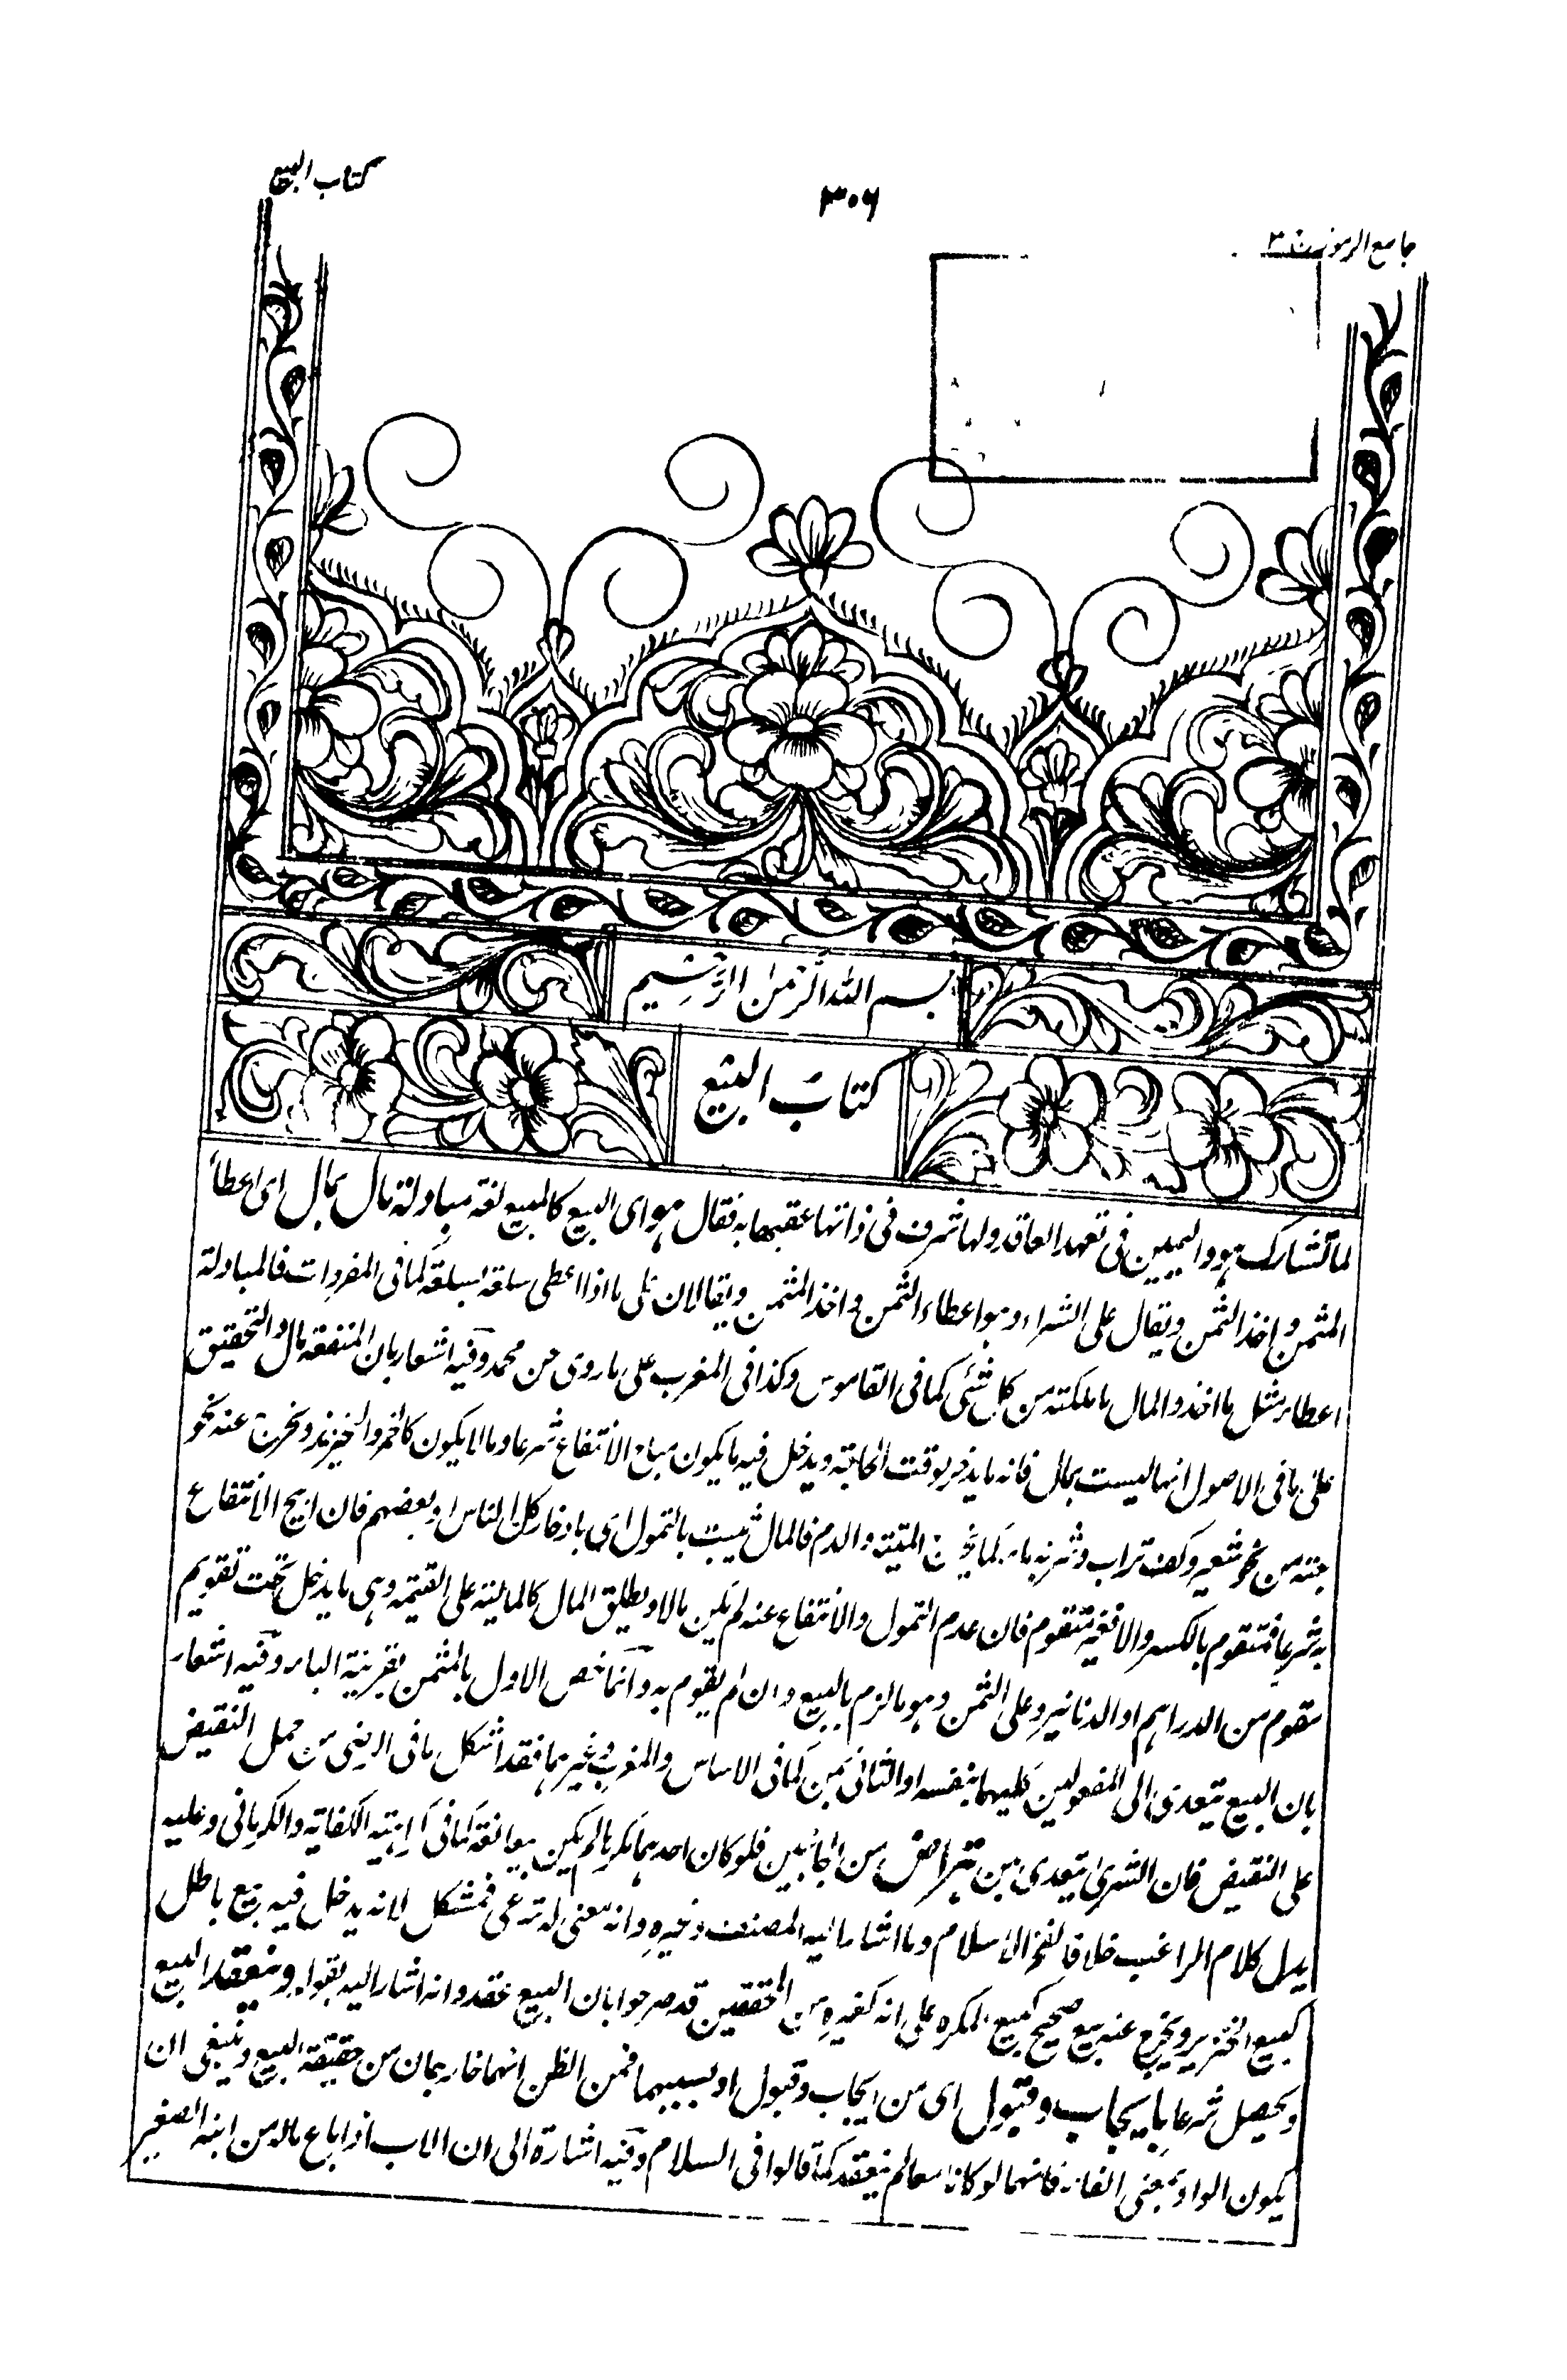 كتاب البيع
٣٠٦
جامع الرموز ٣
بسم الله الرحمن الرحيم
كتاب البيع
لما تشارك هو واليمين فى تعهد العاقد ولها شرف فى ذاتها عقبها به فقال هو اى البيع كالمبيع لغة مبادلة مال بمال اى اعطاء
المثمن واخذ الثمن ويقال على الشراء وهو اعطاء الثمن واخذ المثمن ويقالان على ما اذا اعطى سلعة بسلعة كما فى المفردات فالمبادلة
اعطاء مثل ما اخذ والمال ما ملكته من كل شئى كما فى القاموس وكذا فى المغرب على ما روى عن محمد وفيه اشعار بان المنفعة مال والتحقيق
على ما فى الاصول انها ليست بمال فانه ما يدخر لوقت الحاجة ويدخل فيه ما يكون مباح الانتفاع شرعا وما لا يكون كالخمر والخنزير ويخرج عنه نحو
حبة من نحو شعير وكف تراب وشربة ماء كما يخرج الميتة والدم فالمال يثبت بالتمول اى بادخار كل الناس او بعضهم فان ابيح الانتفاع
به شرعا فمتقوم بالكسر والا فغير متقوم فان عدم التمول والانتفاع عنه لم يكن مالا ويطلق المال كالمالية على القيمة وهى ما يدخل تحت تقويم
مقوم من الدراهم او الدنانير وعلى الثمن وهو ما لزم بالبيع وان لم يقوم به وانما خص الاول بالمثمن بقرينة الباء وفيه اشعار
بان البيع يتعدى الى المفعولين كليهما بنفسه او الثانى بمن كما فى الاساس والمغرب وغيرهما فقد اشكل ما فى الرضى من حمل النقيض
على النقيض فان الشرى يتعدى بمن بتراض من الجانبين فلو كان احدهما مكرها لم يكن بيعا لغة كما فى كراهية الكفاية والكرمانى وعليه
يدل كلام الراغب خلافا لفخر الاسلام وما اشار اليه المصنف وغيره وانه معنى له شرعى فمشكل لانه يدخل فيه بيع باطل
كبيع الخنزير ويخرج عنه بيع صحيح كبيع المكره على انه كغيره من المحققين قد صرحوا بان البيع عقد وانه اشار اليه بقوله وينعقد البيع
ويحصل شرعا بايجاب وقبول اى من ايجاب وقبول او بسببهما فمن الظن انهما خارجان من حقيقة البيع وينبغى ان
يكون الواو بمعنى الفاء فانهما لو كانا معا لم ينعقد كما قالوا فى السلام وفيه اشارة الى ان الاب اذا باع ماله من ابنه الصغير